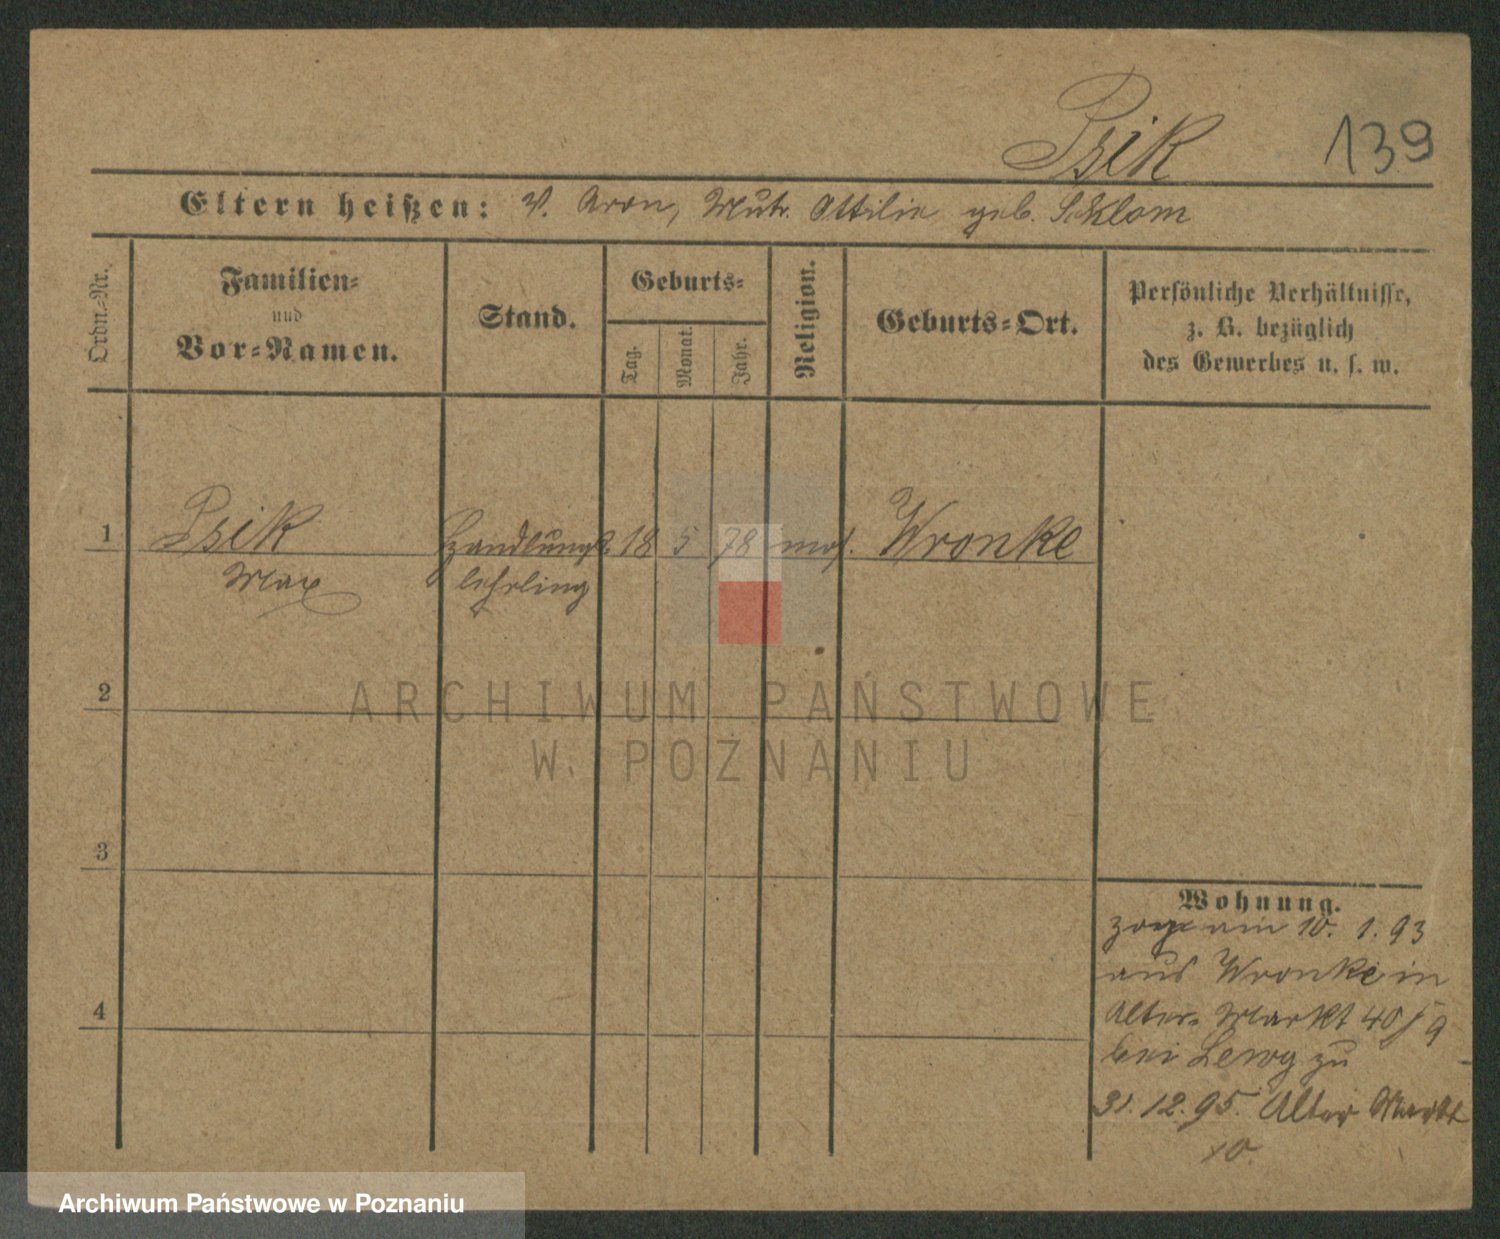 Psik 139
Eltern heißen: V. Aron, Mutr. Ottilie geb. Sklom
Ordn.-Nr.
Familien-
und
Vor-Namen.
Stand.
Geburts-
Tag.
Monat.
Jahr.
Religion.
Geburts-Ort.
Persönliche Verhältnisse,
z. B. bezüglich
des Gewerbes u. s. w.
1 Psik Handlungs 18 5 78 mos. Wronke
Max lehrling
2
ARCHIWUM PAŃSTWOWE
W POZNANIU
3
4
Wohnung.
zog am 10. 1. 93
aus Wronke in
Alter Markt 40/9
bei Lewy zu
31. 12. 95. Alter Markt
10.
Archiwum Państwowe w Poznaniu